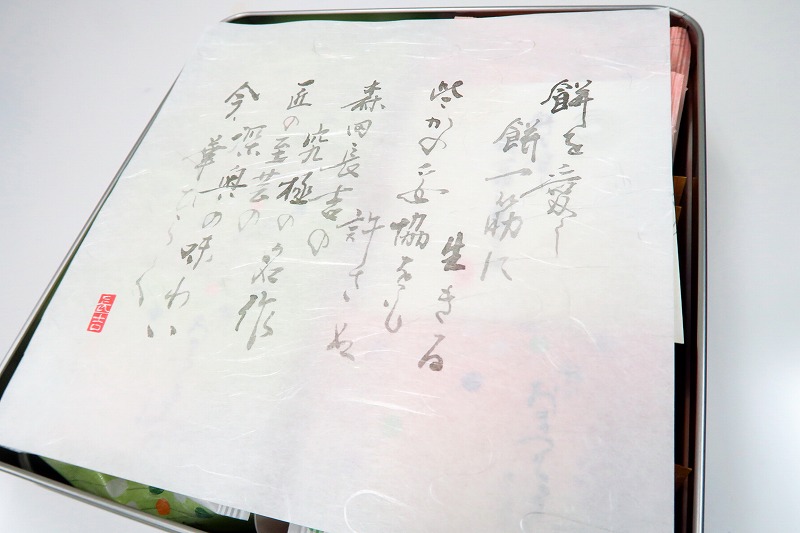 餅を愛し
餅一筋に
生きる
些かの妥協をも
許さぬ
森田長吉の
究極の名作
匠の至芸の
深奥の味わい
今華ひらく